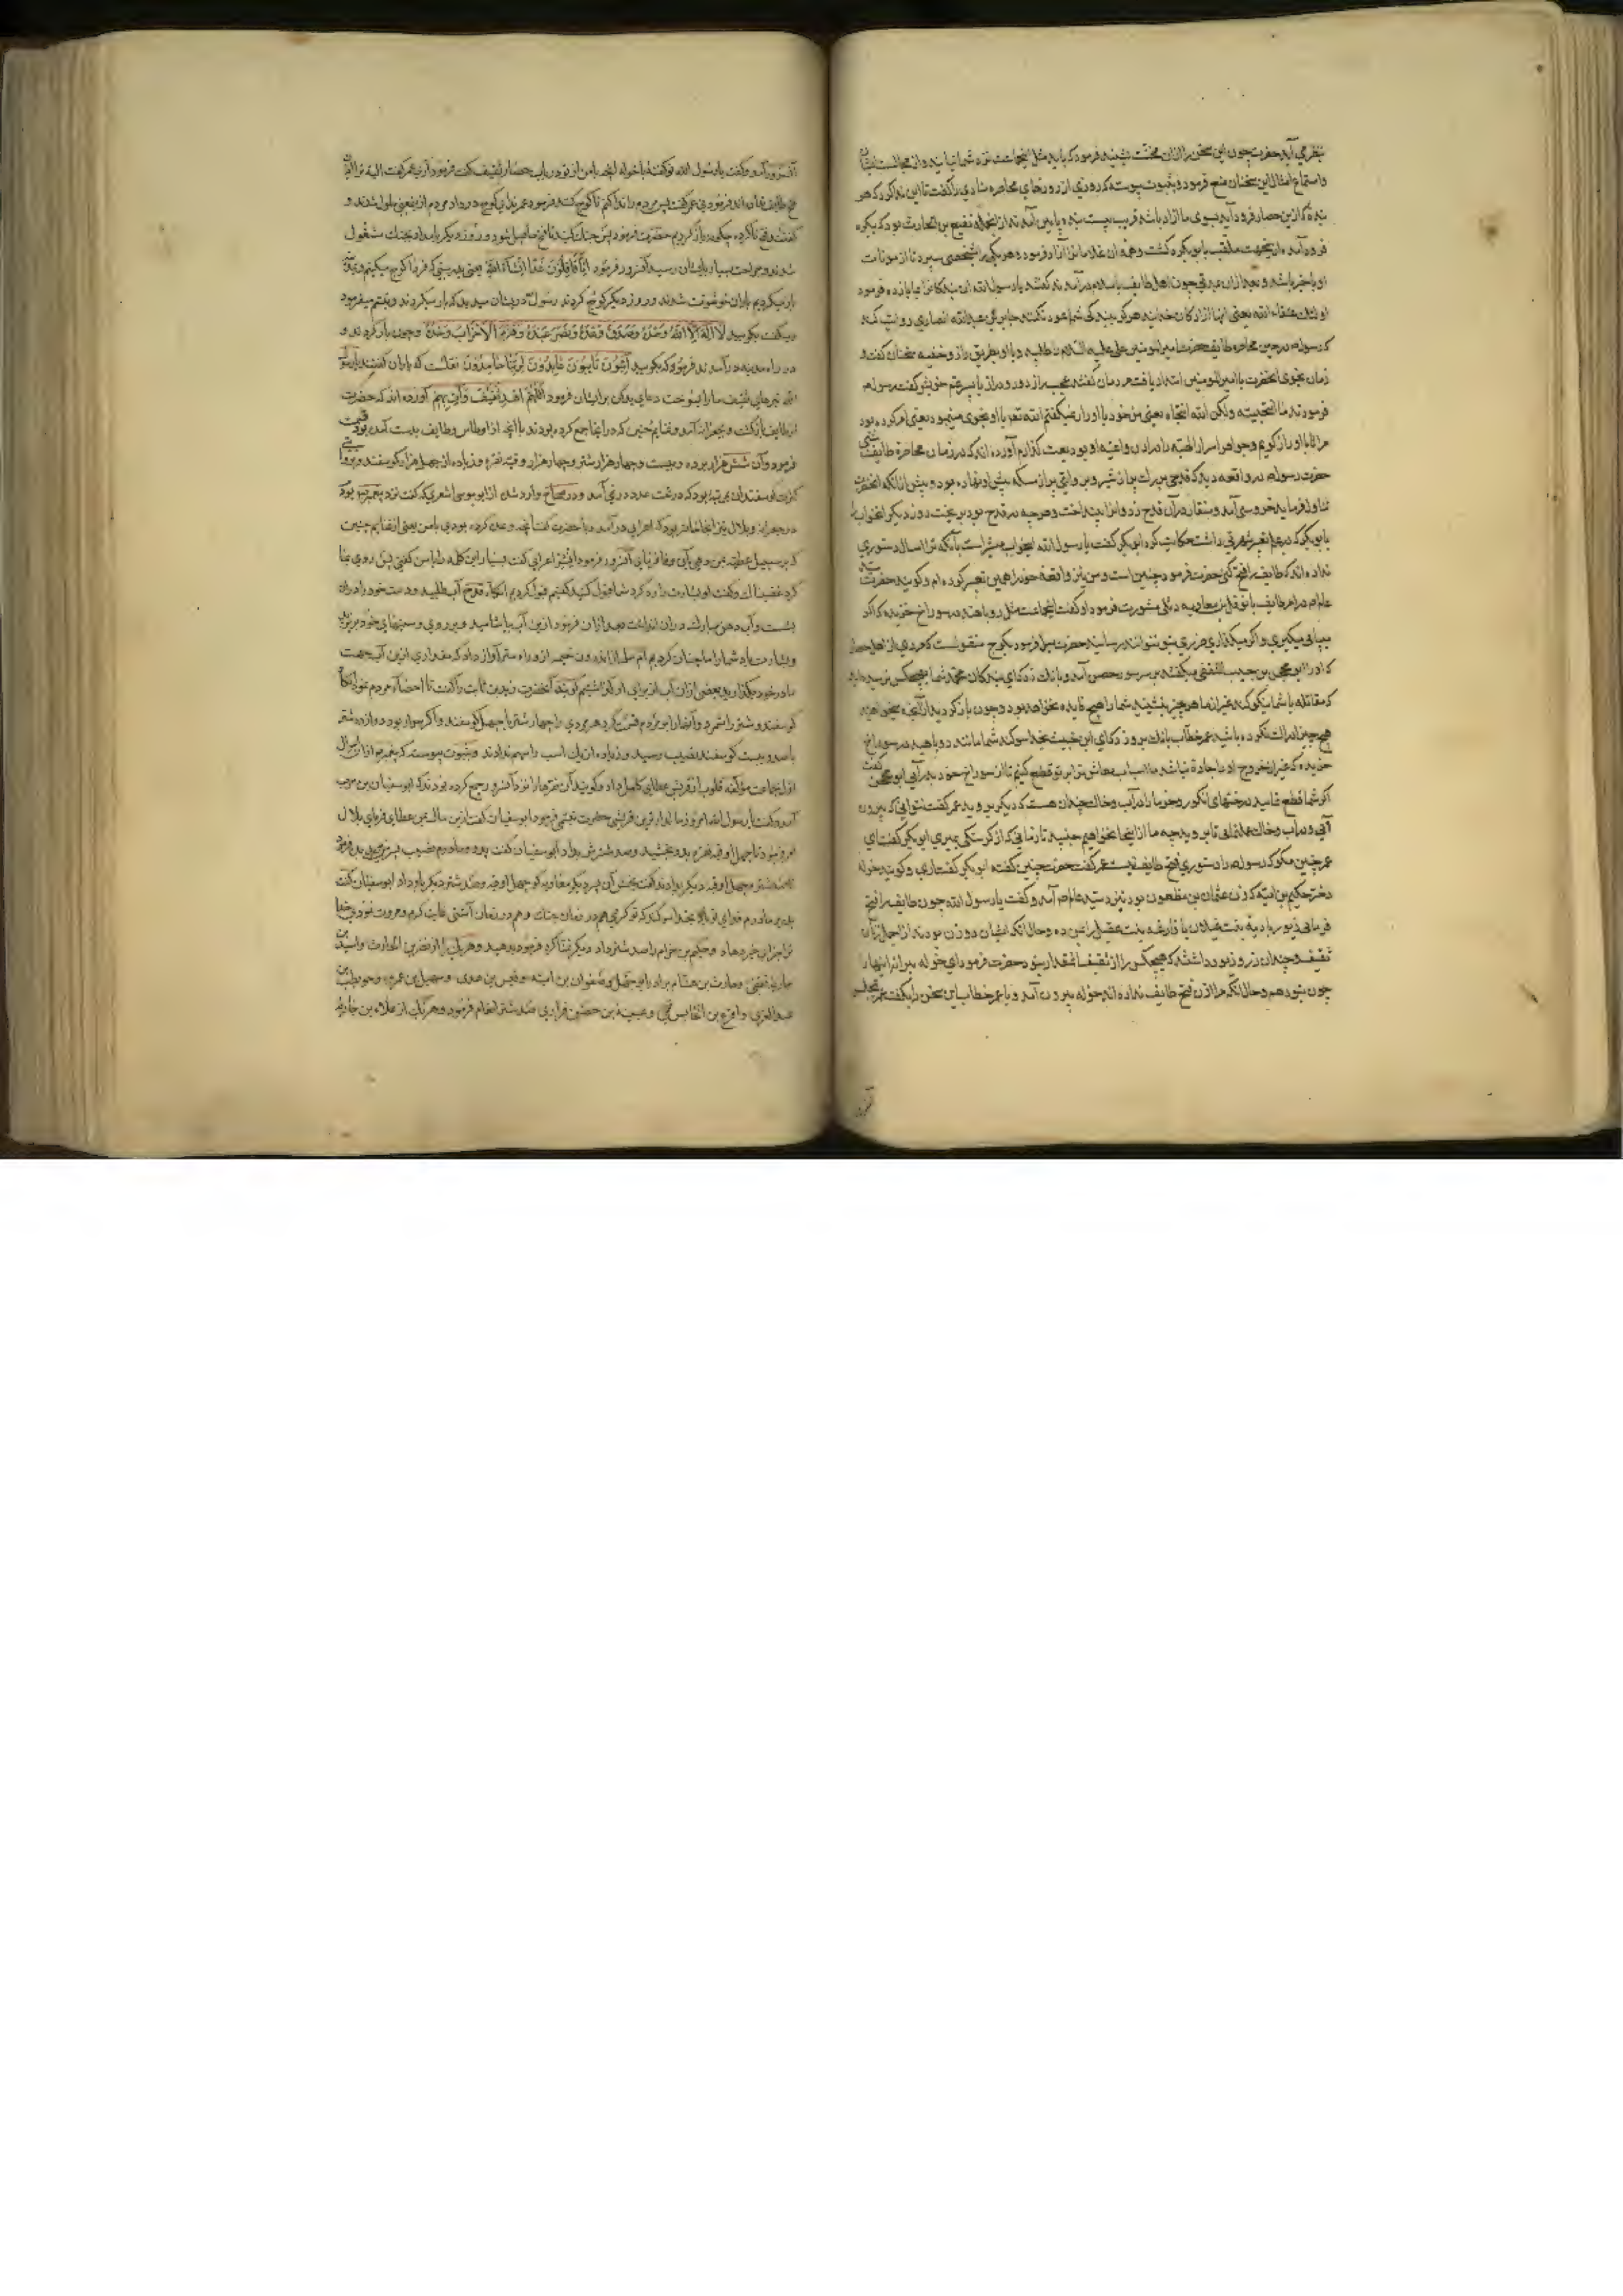 بنظر می آید حضرت چون این سخن را ازان مخنث بشنید فرمود که باید مثل اینجماعت نزد شما نیایند و از مجالست ایشان
و استماع امثال این سخنان منع فرمود و بثبوت پیوسته که روزی از روزهای محاصره منادی را گفت تا این ندا کرد که هر
بنده که ازین حصار فرود آید بسوی ما آزاد باشد قریب بیست بنده پایین آمدند از آنجمله نفیع بن الحارث بود که ببکره
فرود آمد و از ینجهت ملقب بابو بکره گشت و همه آن غلامانرا آزاد فرمود و هر یکی را بشخصی سپرد تا از مونات
او باخبر باشد و بعد ازان مدتی چون اهل طایف باسلام در آمدند گفتند یا رسول الله این بندکانرا بما باز ده فرمود
اولئك عتقاء الله یعنی اینها آزاد کان خدایند هرگز ببندکی شما عود نکنند جابر بن عبد الله انصاری روایت کند
که رسول در حین محاصره طایف حضرت امیر المومنین علی علیه السلام را طلبید و با او بطریق راز و خفیه سخنان گفت و
زمان نجوی آنحضرت با امیر المومنین امتداد یافت مردمان گفتند عجب راز دور و دراز با پسر عم خویش گفت رسول
فرمودند ما انتجیته ولکن الله انتجاه یعنی من خود با او راز نمیگفتم الله تعالی با او نجوی مینمود یعنی امر کرده بود
مرا تا با او راز گویم و جواهر اسرار الهیه را در اذن واعیه او بودیعت گذارم آورده اند که در زمان محاصره طایف شبی
حضرت رسول در واقعه دید که قدحی بزرگ پر از شیر و بروایتی پر از مسکه پیش او نهاده بود و پیش از آنکه آنحضرت
تناول فرماید خروسی آمد و منقار در آن قدح زد و انرا بینداخت و هرچه در قدح بود بریخت روز دیگر آنخواب را
با ابو بکر که در علم تعبیر شهرتی داشت حکایت کرد ابو بکر گفت یا رسول الله اینخواب مبشر است بآنکه ترا امسال دستوری
نداده اند که طایف را فتح کنی حضرت فرمود چنین است و من نیز واقعه خود را همین تعبیر کرده ام و گویند حضرت رسالت
در امر طایف با نوفل بن معاویه دئلی مشورت فرمود او گفت اینجماعت مثل روباهند در سوراخ خزیده که اگر
بپایی میگیری و اگر میگذاری ضرری بتو نتوانند رسانید حضرت میل فرمود بکوچ منقولست که مردی از اهل حصار
که او را ابو محجن بن حبیب الثقفی میگفتند بر سر سور حصن آمد و بانك زد که ای بندکان محمد شما بهیچکس نرسیده اید
که مقاتله با شما نیکو کند غیر از ما هر چند بنشینید شما را هیچ فایده نخواهد بود و چون باز گردید از آنچه میخواهید
هیچ چیز ادراك نکرده باشید عمر خطاب بانك برو زد که ای ابن خبیث بخدا سوگند شما مانند روباهید در سوراخ
خزیده که غیر از خروج او را چاره نباشد ما اسباب معاش ترا بر تو قطع کنیم تا از سوراخ خود بدر آیی ابو محجن گفت
اگر شما قطع نمایید درختهای انگور و خرما را در آب و خاك چندان هست که دیگر بروید عمر گفت نتوانی که بیرون
آیی و در آب و خاك عمل نمایی تا بروید چه ما از اینجا نخواهیم جنبید تا زمانی که از گرسنگی بمیری ابو بکر گفت ای
عمر چنین مگو که رسول را دستوری فتح طایف نیست عمر گفت حضرت چنین گفته ابو بکر گفت آری و گویند خوله
دختر حکیم بن امیه که زن عثمان بن مظعون بود نیز آمد و گفت یا رسول الله چون طایف را فتح
فرمایی زیور بادیه بنت غیلان یا فارغه بنت عقیل را بمن ده و حال آنکه ایشان دو زن بودند از اجمل زنان
ثقیف و چندان زر و زیور داشتند که هیچکس را از ثقیف آنمقدار نبود حضرت فرمود ای خوله
چون بتو دهم و حال آنکه مرا اذن فتح طایف نداده اند خوله بیرون آمد و با عمر خطاب این سخن را بگفت عمر بمجلس
آنسرور
آنسرور آمد و گفت یا رسول الله تو گفته با خوله آنچه با من از تو در باب حصار ثقیف گفت فرمود آری عمر گفت
فتح طایف نداده اند فرمود نی عمر گفت پس مردم را ندا کنم تا کوچ کنند فرمود عمر ندای کوچ در داد مردم از ینمعنی ملول شدند و
گفتند فتح ناکرده چگونه باز گردیم حضرت فرمود پس جنك کنید تا فتح حاصل شود و روز دیگر بامداد بجنك مشغول
شدند و جراحت بسیار بایشان رسید آنسرور فرمود انا قافلون غدا ان شاء الله یعنی بدرستی که فردا کوچ میکنیم
باز میگردیم یاران خوشوقت شدند و روز دیگر کوچ کردند رسول در ایشان میدید که بار میکردند و تبسم میفرمود
و میگفت بگویید لا اله الا الله وحده وصدق وعده ونصر عبده وهزم الاحزاب وحده و چون بار کردند و
در راه مدینه در آمدند فرمود که بگویید آئبون تائبون عابدون لربنا حامدون نقلست که یاران گفتند یا رسول
الله تیرهای ثقیف ما را بسوخت دعای بدکن بر ایشان فرمود اللهم اهد ثقیفا وآت بهم آورده اند که حضرت
از طایف بازگشت و بجعرانه آمد و غنایم حنین که در آنجا جمع کرده بودند با آنچه از اوطاس و طایف بدست آمده بود قسمت
فرمود و آن شش هزار برده و بیست و چهار هزار شتر و چهار هزار وقیه نقره و زیاده از چهل هزار گوسفند و بروایتی
کثرت گوسفندان بمرتبه بود که در تحت عدد در نمی آمد و در صحاح وارد شده از ابو موسی اشعری که گفت نزد پیغمبر بود
در جعرانه و بلال نیز آنجا حاضر بود که اعرابی در آمد و با حضرت گفت آنچه وعده کرده بودی با من یعنی از غنایم حنین
که بر سبیل عطیه بمن دهی وفا نمایی آنسرور فرمود ابشر اعرابی گفت بسیار این کلمه را با من گفتی پس روی بما
کرد غضبناك و گفت او بشارت را رد کرد شما قبول کنید گفتیم قبول کردیم آنگاه قدح آب طلبید و دست خود را در آن
بشست و آب دهن مبارك در آن انداخت بعد ازان فرمود ازین آب بیاشامید و بر روی و سینهای خود بریزید
و بشارت باد شما را ما چنان کردیم ام سلمه از اندرون خیمه از وراء ستر آواز داد که مقداری ازین آب جهت
مادر خود بگذارید بعضی ازان آب از برای او گذاشتیم گویند آنحضرت زید بن ثابت را گفت تا احضار مردم نمود
گوسفند و شتر را شمرد و آنها را بر مردم قسمت کرد هر مردی را چهار شتر با چهل گوسفند و اگر سوار بود دوازده شتر
با صد و بیست گوسفند نصیب رسید و زیاده از یك اسب را سهم ندادند و بثبوت پیوست که پیغمبر از آن اموال
از جماعت مؤلفه قلوب از قریش عطایی کامل داد و گویند آن نقرها را نزد آنسرور جمع کرده بودند که ابو سفیان بن حرب
آمد و گفت یا رسول الله امروز مالدار ترین قریشی حضرت تبسمی فرمود ابو سفیان گفت ازین مال بمن عطایی فرمای بلال را
امر فرمود تا چهل اوقیه نقره بدو بخشید و صد شترش بداد ابو سفیان گفت
تا صد شتر و چهل اوقیه دیگر بدادند گفت بخش پسر دیگر معاویه کو چهل اوقیه و صد شتر دیگر باو داد ابو سفیان گفت
پدر و مادرم فدای تو باد بخدا سوگند که تو کریمی هم در زمان جنك و هم در زمان آشتی غایت کرم و مروت نمودی خدا
ترا جزای خیر دهاد و حکیم بن حزام را صد شتر داد دیگر تمنا کرد فرمود بدهید و هر یك را از نضر بن الحارث و اسید بن
جاریه ثقفی و حارث بن هشام برادر ابو جهل و صفوان بن امیه و قیس بن عدی و سهیل بن عمرو و حویطب بن
عبد العزی و اقرع بن الحابس و عیینه بن حصن فزاری صد شتر انعام فرمود و هر یك از علاء بن جاریه